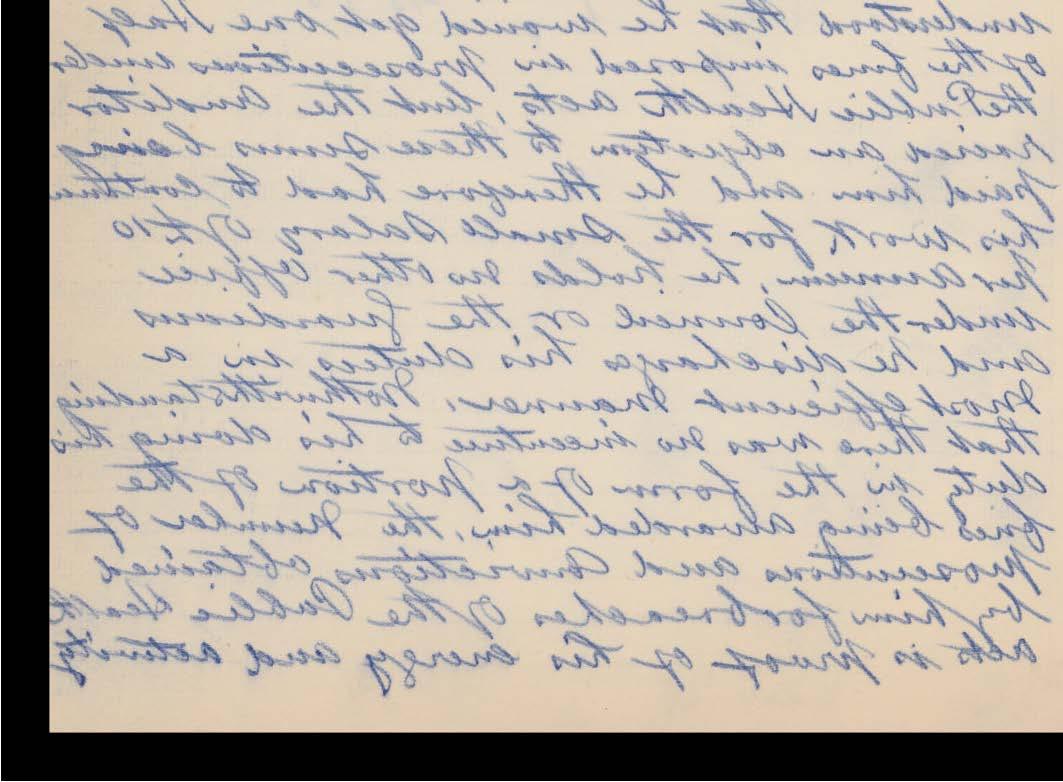 understood that he would get one Half
of the fines imposed in prosecutions under
the Public Health acts, but the auditor
raised an objection to these sums being
paid him and he therefore had to continue
his work for the small Salary of £10
per annum, he holds no other office
under the Council or the Guardians
and he discharges his duties in a
most efficient manner. Notwithstanding
that there was no incentive to his doing his
duty in the form of a portion of the
fines being awarded him, the number of
prosecutions and Convictions obtained
by him for breaches of the Public Health
acts is proof of his energy and activity